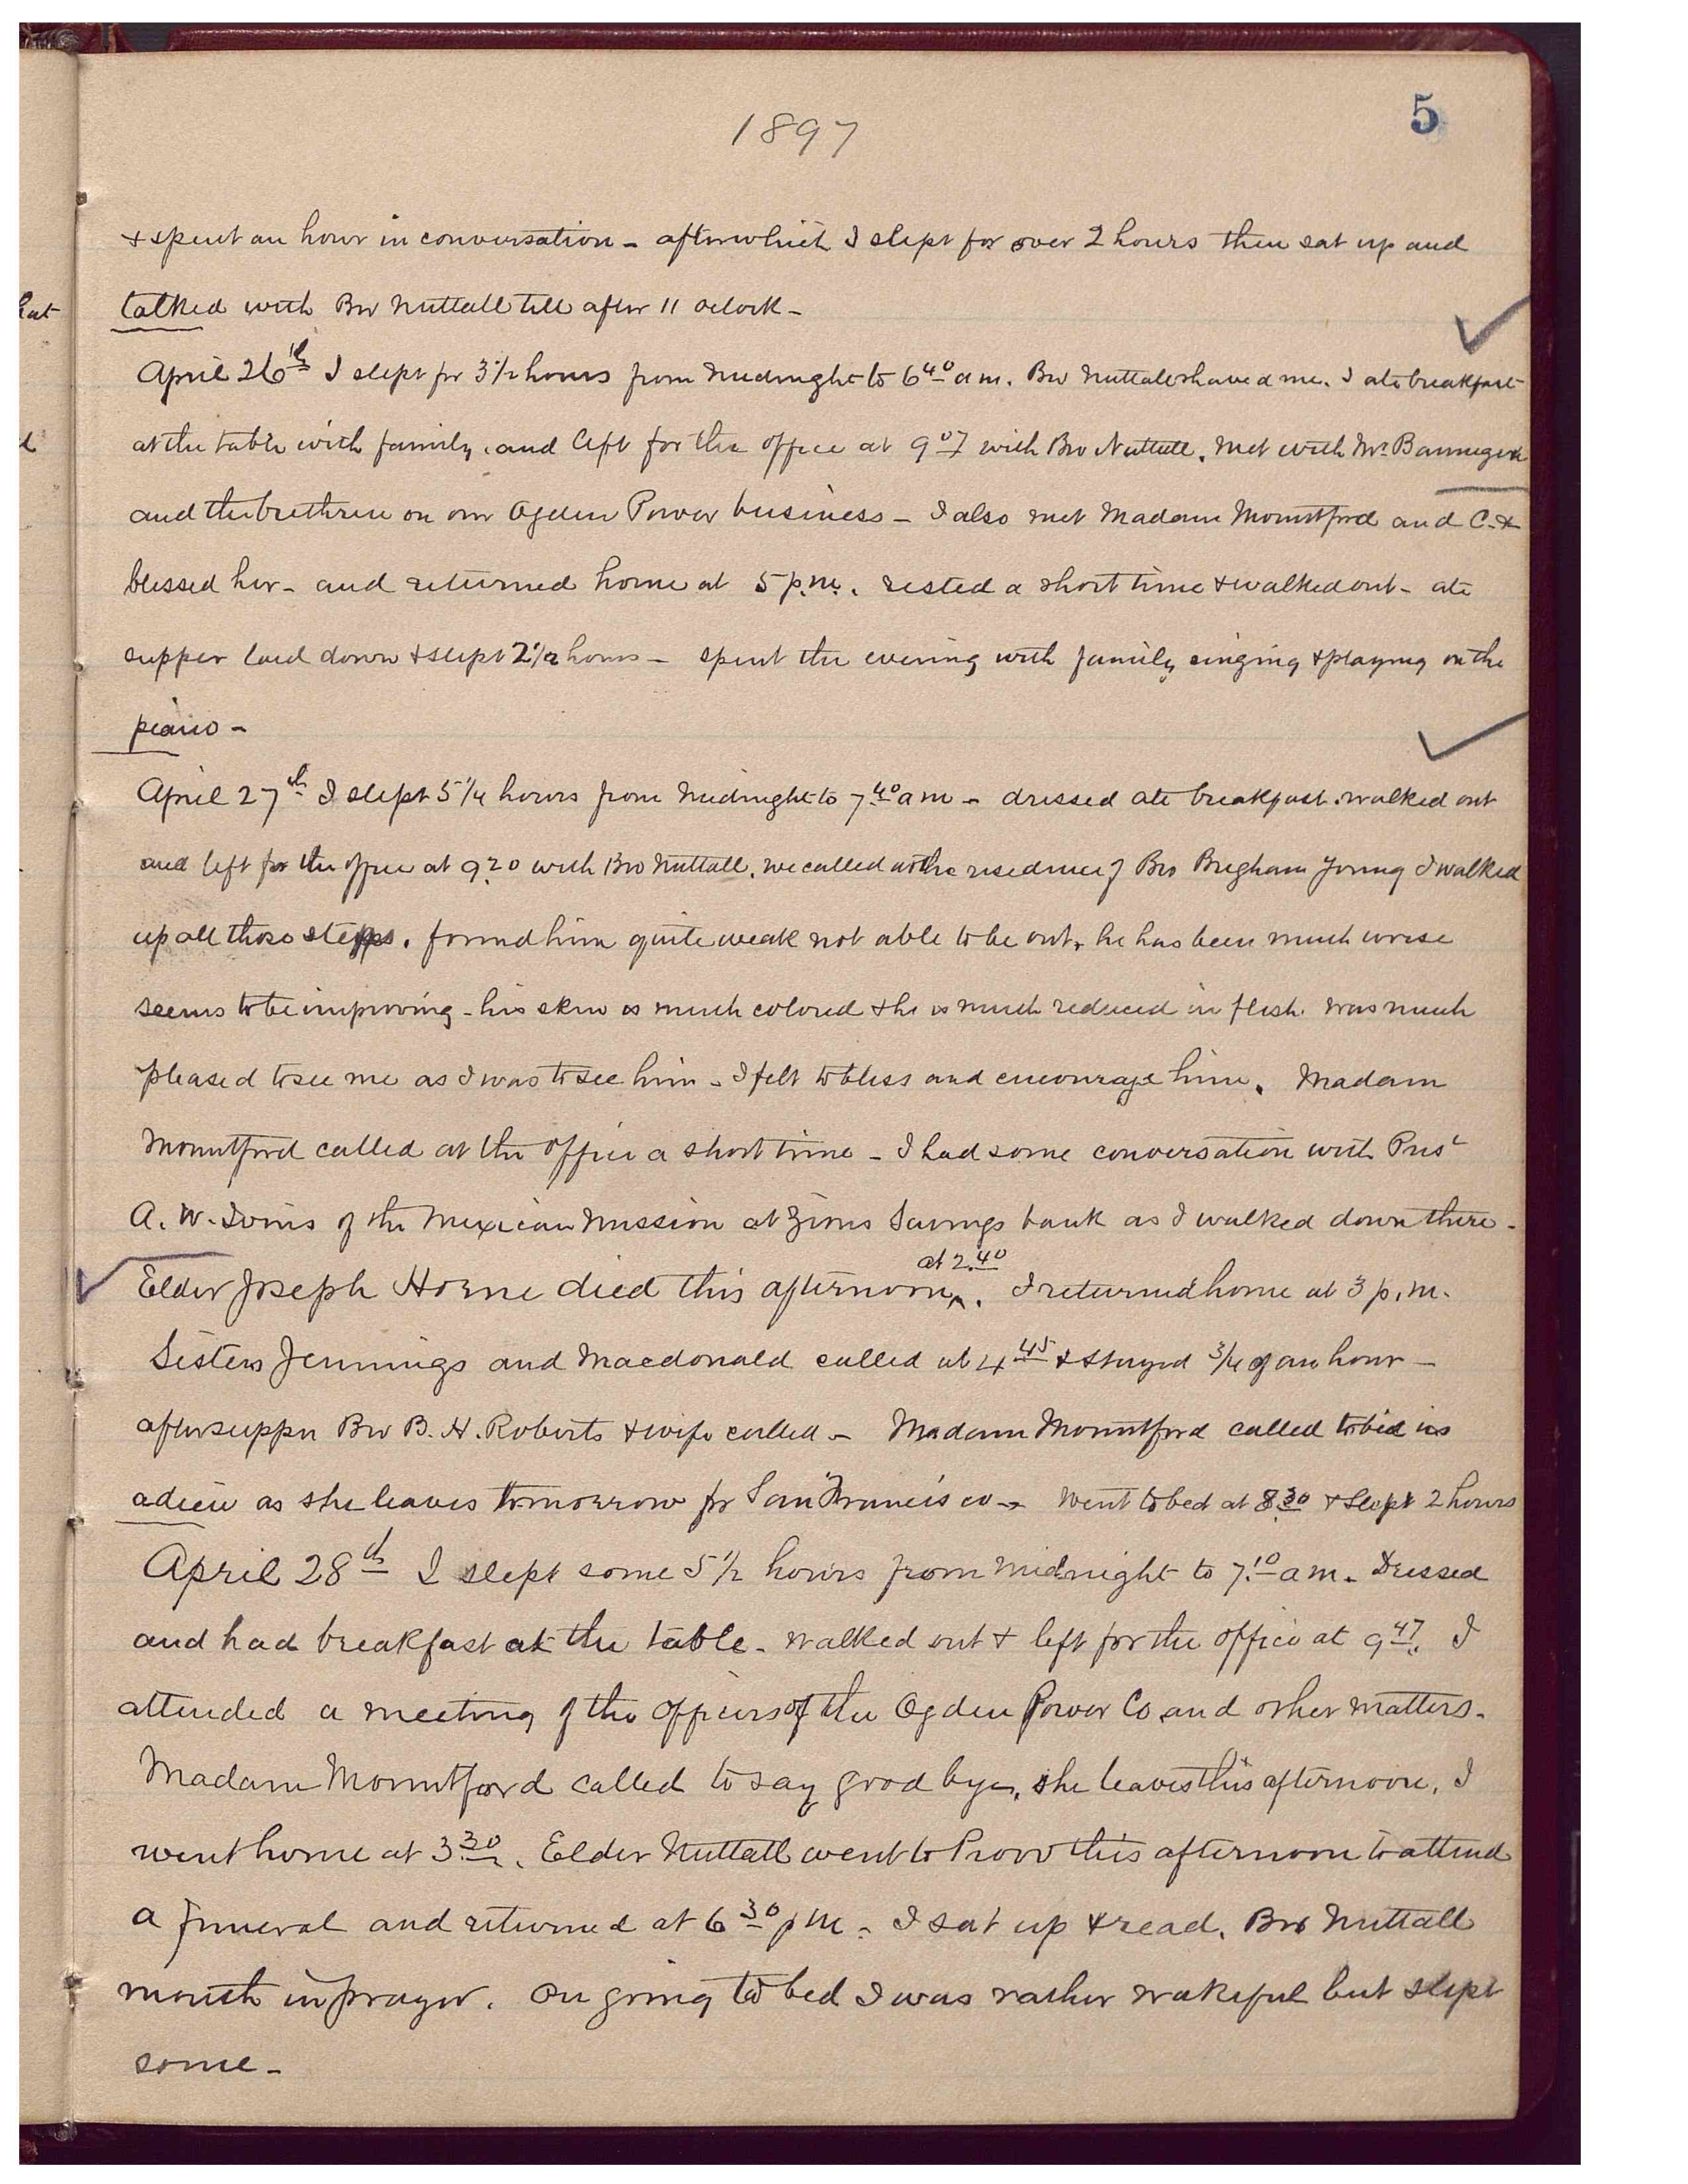 5
1897
& spent an hour in conversation - after which I slept for over 2 hours then sat up and
hat
talked with Bro Nuttall till after 11 oclock -
April 26th I slept for 3 1/2 hours from midnight to 6 40 a m. Bro Nuttall shaved me. I ate breakfast
at the table with family. and left for the office at 9 07 with Bro Nuttall. met with Mr Bannigan
and the brethren on our Ogden Power business - I also met Madam Mountford and C. &
blessed her - and returned home at 5 p.m. rested a short time & walked out - ate
supper laid down & slept 2 1/2 hours - spent the evening with family singing & playing on the
piano -
April 27th I slept 5 1/4 hours from midnight to 7 40 a m - dressed ate breakfast. walked out
and left for the office at 9.20 with Bro Nuttall. we called at the residence of Bro Brigham Young I walked
up all those steps. found him quite weak not able to be out. he has been much worse
seems to be improving - his skin is much colored & he is much reduced in flesh. was much
pleased to see me as I was to see him - I felt to bless and encourage him. Madam
Mountford called at the office a short time - I had some conversation with Prest
A. W. Ivins of the Mexican Mission at Zions Savings bank as I walked down there -
at 2.40
Elder Joseph Horne died this afternoon ^. I returned home at 3 p. m.
Sisters Jennings and Macdonald called at 4 45 & stayed 3/4 of an hour -
after supper Bro B. H. Roberts & wife called - Madam Mountford called to bid us
adieu as she leaves tomorrow for San Francisco - Went to bed at 8.30 & slept 2 hours
April 28th I slept some 5 1/2 hours from midnight to 7.10 a m. Dressed
and had breakfast at the table - walked out & left for the office at 9 47. I
attended a meeting of the officers of the Ogden Power Co and other matters.
Madam Mountford called to say good bye, she leaves this afternoon. I
went home at 3.30. Elder Nuttall went to Provo this afternoon to attend
a funeral and returned at 6 30 p m. I sat up & read. Bro Nuttall
mouth in prayer. On going to bed I was rather wakeful but slept
some -